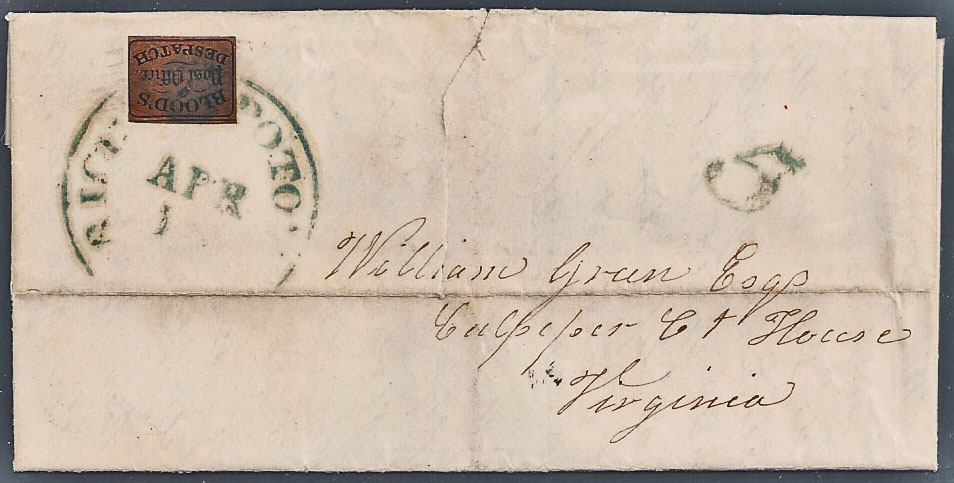 BLOOD'S
Post Office
DESPATCH
APR
1
5
William Green Esqr
Culpeper Ct House
Virginia